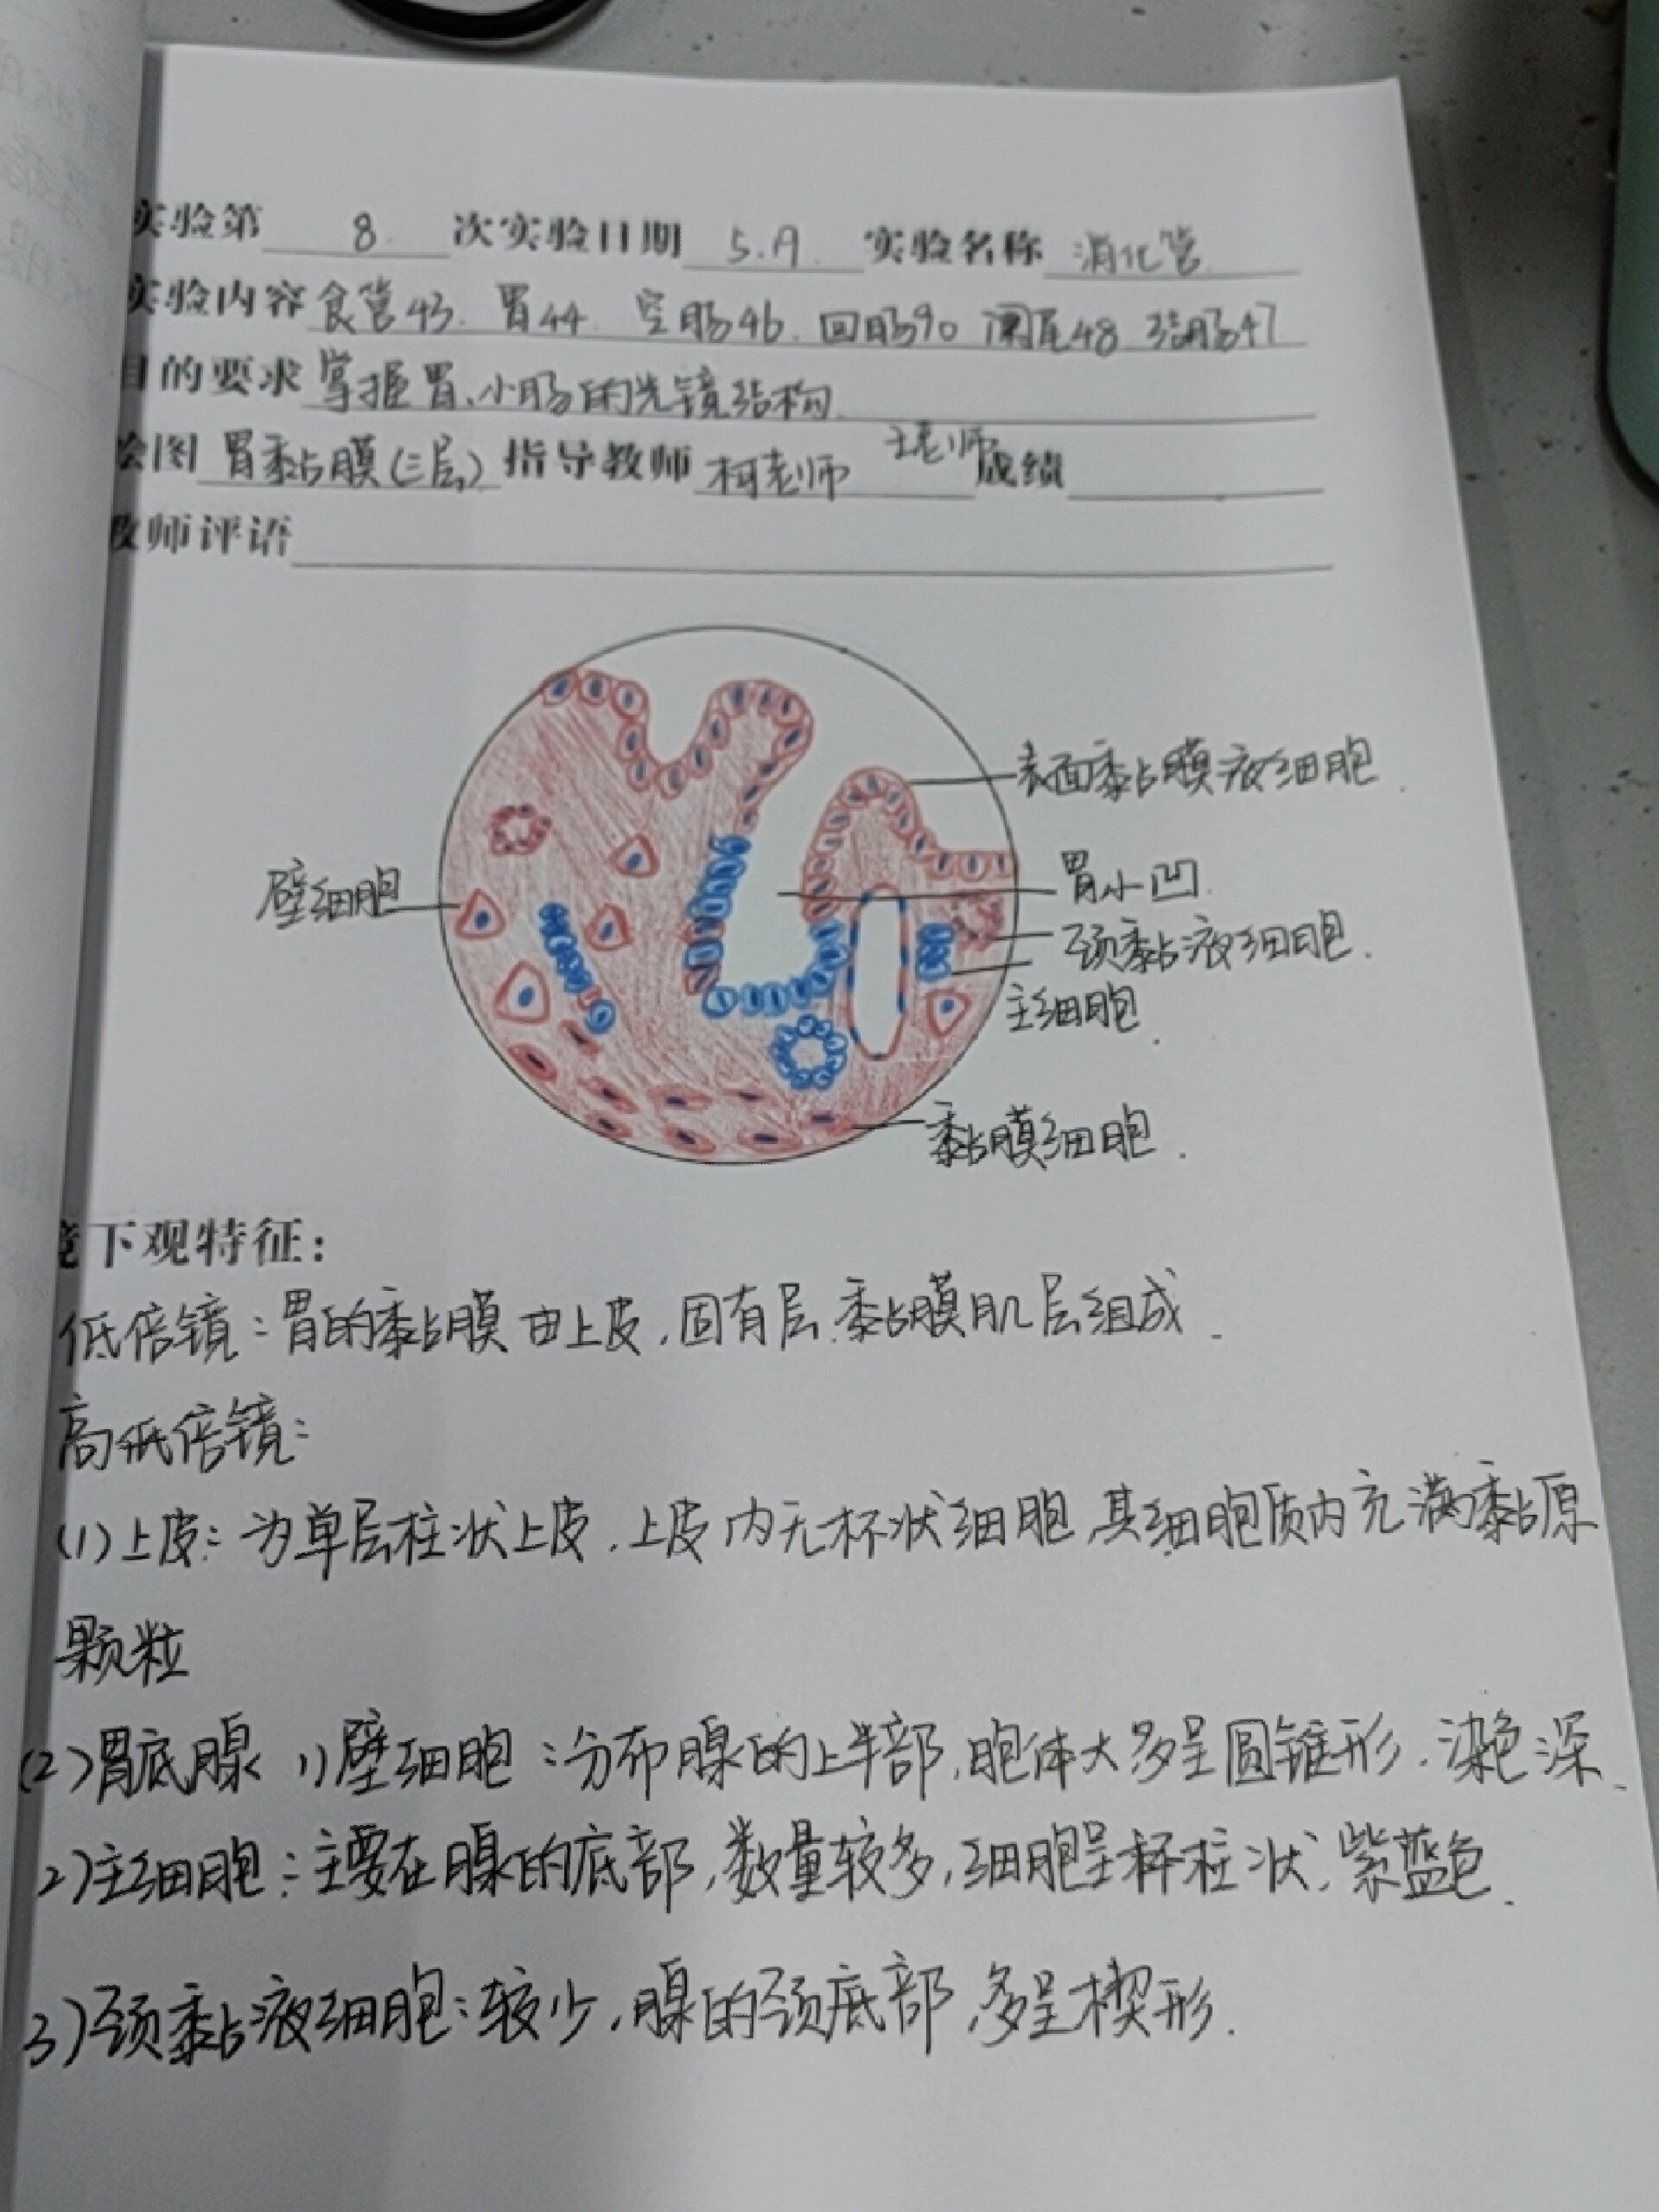 实验第 8 次实验日期 5.19 实验名称 消化管
实验内容 食管43. 胃44 空肠46. 回肠90 阑尾48 结肠47
目的要求 掌握胃、小肠的光镜结构
绘图 胃黏膜(三层) 指导教师 柯老师 王老师 成绩
教师评语
表面黏膜液细胞.
壁细胞
胃小凹.
颈黏液细胞.
主细胞.
黏膜细胞.
下观特征:
低倍镜:胃的黏膜由上皮,固有层.黏膜肌层组成.
高低倍镜:
(1)上皮:为单层柱状上皮,上皮内无杯状细胞,其细胞质内充满黏原
颗粒
(2)胃底腺 1)壁细胞:分布腺的上半部,胞体大多呈圆锥形.染色深.
2)主细胞:主要在腺的底部,数量较多,细胞呈柱状,紫蓝色.
3)颈黏液细胞:较少,腺的颈底部,多呈楔形.